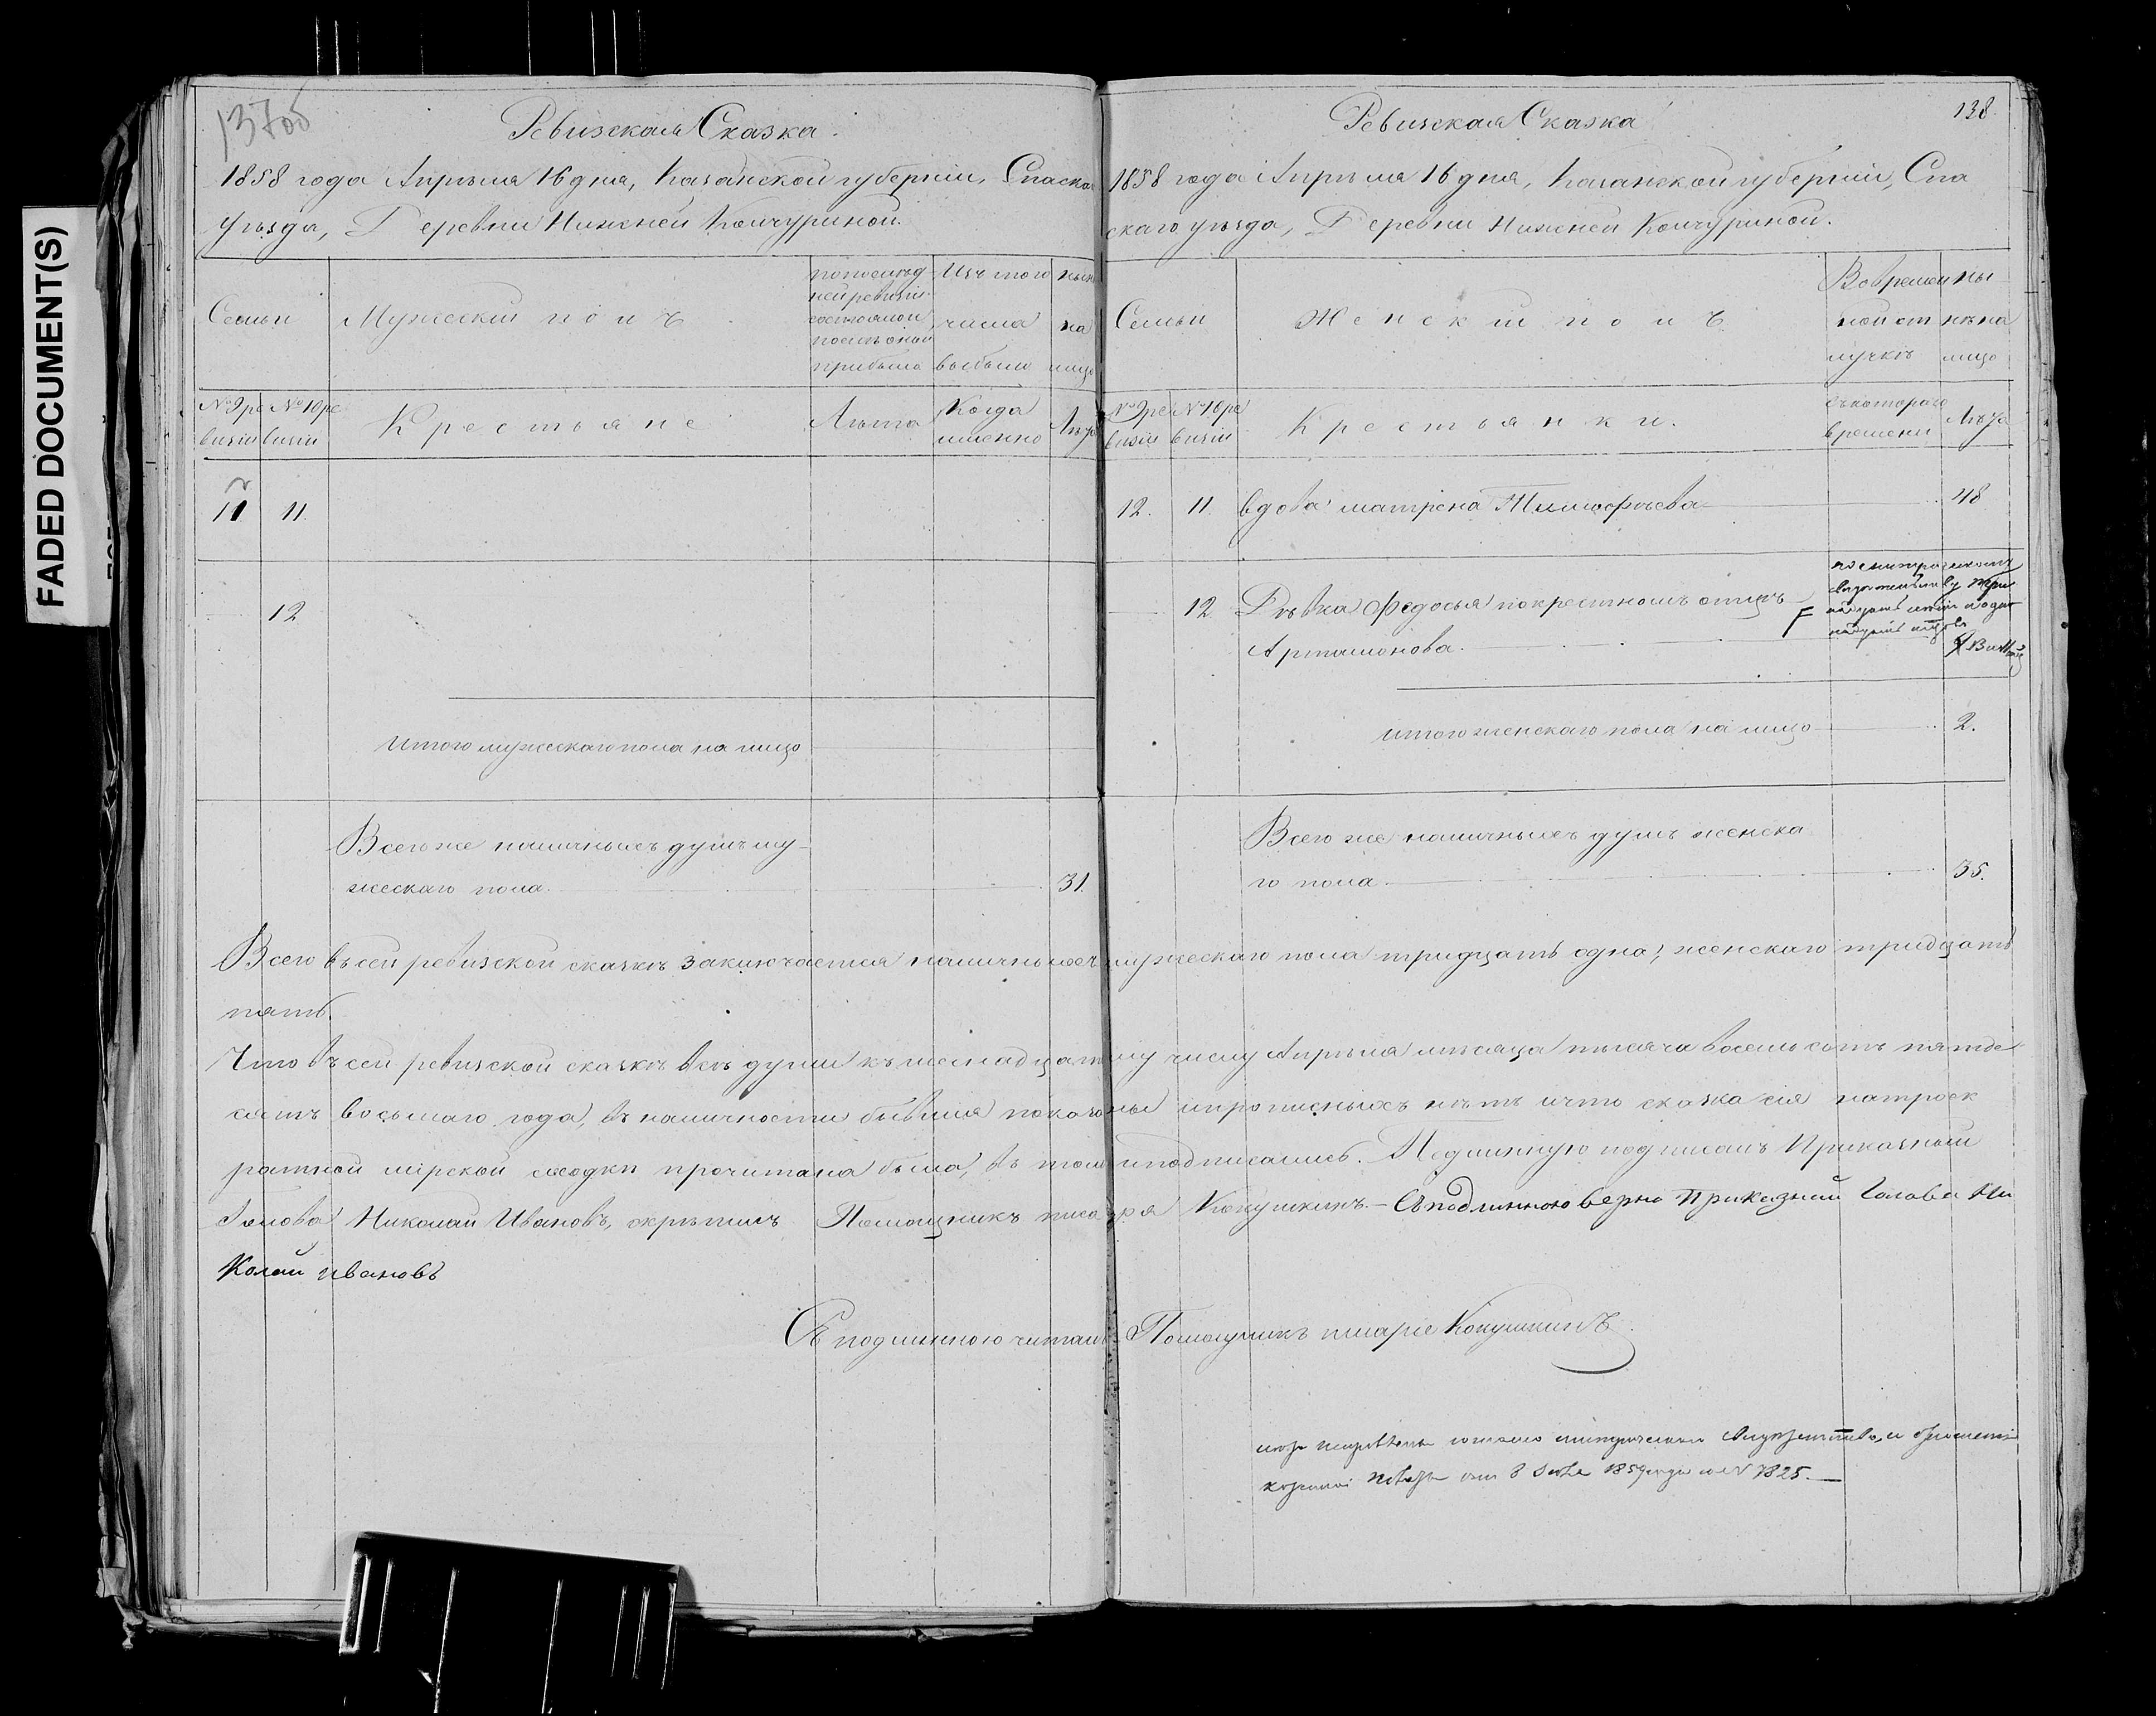 FADED DOCUMENT(S)
137об
Ревизская Сказка.
1858 года Апрѣля 16 дня, Казанской губерніи, Спаскаго
уѣзда, Деревни Нижней Кончуриной.
Семьи
Мужескій полъ
по послѣд
ней ревизіи
состояло и
послѣ оной
прибыло
Изъ того
числа
выбыло
нынѣ
на
лицо
№ 9 ре
визіи
№ 10 ре
визіи
Крестьяне
Лѣта
Когда
именно
Лѣта
11 11.
12
итого мужескаго пола на лицо
Всего же наличныхъ душъ му
жескаго пола. 31.
138.
Ревизская Сказка
1858 года Апрѣля 16 дня, Казанской губерніи, Спа
скаго уѣзда, Деревни Нижней Кончуриной.
Семьи
Женскій полъ
Во времен
ной от
лучкѣ
ны
нѣ на
лицо
№ 9 ре
визіи
№ 10 ре
визіи
Крестьянки.
съ котораго
времени
Лѣта
12. 11. вдова Матрена Тимофѣева 48
12 Дѣвка Федосья по крестномъ отцѣ
Артамонова.
по метрическому
свидѣтельству
итого женскаго пола на лицо 2.
Всего же наличныхъ душъ женска
го пола 35.
Всего въ сей ревизской сказкѣ заключается наличныхъ мужескаго пола тридцать одна, женскаго тридцать
пять.
Что въ сей ревизской сказкѣ всѣ души къ шеснадцатому числу Апрѣля мѣсяца тысяча восемь сотъ пятьде
сятъ восьмаго года, въ наличности бывшія показаны и прописныхъ нѣтъ и что сказка сія на троек
ратной мірской сходки прочитана была, въ томъ и подписались. Подлинную подписалъ Приказный
Голова Николай Ивановъ, скрѣпилъ Помощникъ писаря Кокушкинъ. — Съ подлинною верно Приказный Голова Ни
колай Ивановъ
Съ подлинною читалъ Помощникъ писаря Кокушкинъ
1859 года за № 7825. —